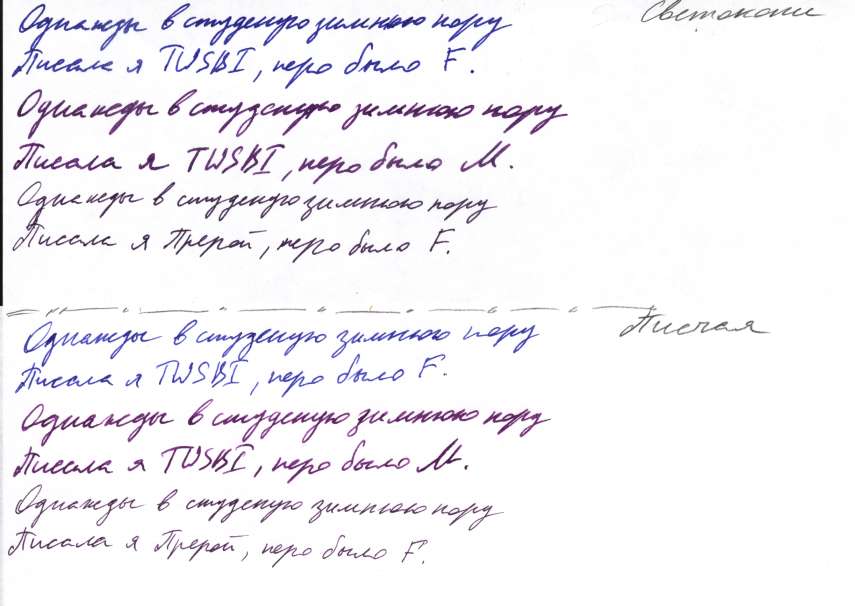 Однажды в студеную зимнюю пору
Светокопи
Писала я TWSBI, перо было F.
Однажды в студеную зимнюю пору
Писала я TWSBI, перо было M.
Однажды в студеную зимнюю пору
Писала я Прерой, перо было F.
Однажды в студеную зимнюю пору
Писчая
Писала я TWSBI, перо было F.
Однажды в студеную зимнюю пору
Писала я TWSBI, перо было M.
Однажды в студеную зимнюю пору
Писала я Прерой, перо было F.